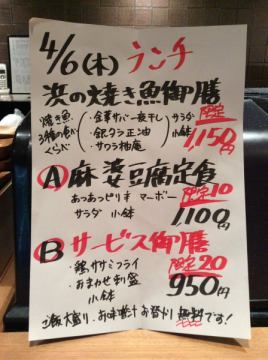 4/6(木) ランチ
浜の焼き魚御膳
焼き魚3種の食べくらべ
・金華サバ一夜干し
・銀タラ正油
・サワラ柚庵
サラダ
小鉢
限定
1,150円
A 麻婆豆腐定食
あつあつピリ辛 マーボー
サラダ 小鉢
限定10
1,100円
B サービス御膳
・鶏ササミフライ
・おまかせ刺盛
小鉢
限定20
950円
ご飯大盛り・お味噌汁お替わり無料です!